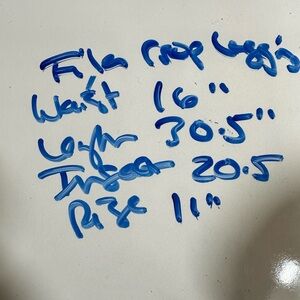 Fila Crop Leggin
Waist 16"
Length 30.5"
Inseam 20.5
Rise 11"